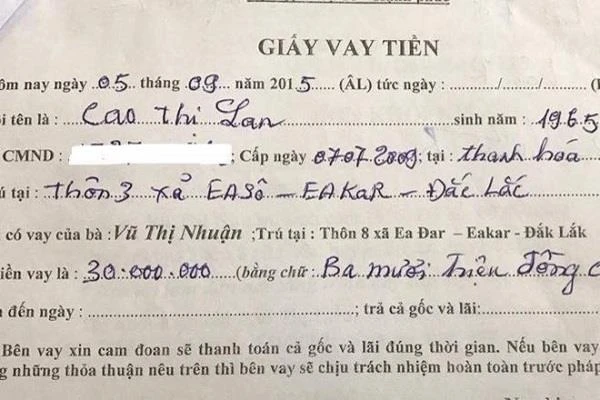 GIẤY VAY TIỀN
ôm nay ngày ..05.. tháng ..09... năm 2015 (ÂL) tức ngày : ......./......./.......
i tên là : Cao Thị Lan sinh năm : 1965
CMND : ; Cấp ngày 07.07.2009; tại : thanh hóa
ú tại : thôn 3 xả EASÔ – EAKAR – Đắc Lắc
có vay của bà : Vũ Thị Nhuận ;Trú tại : Thôn 8 xã Ea Đar – Eakar - Đắk Lắk
iền vay là : 30.000.000 (bằng chữ : Ba mươi Triện đồng
đến ngày : ; trả cả gốc và lãi:
Bên vay xin cam đoan sẽ thanh toán cả gốc và lãi đúng thời gian. Nếu bên vay
g những thỏa thuận nêu trên thì bên vay sẽ chịu trách nhiệm hoàn toàn trước pháp